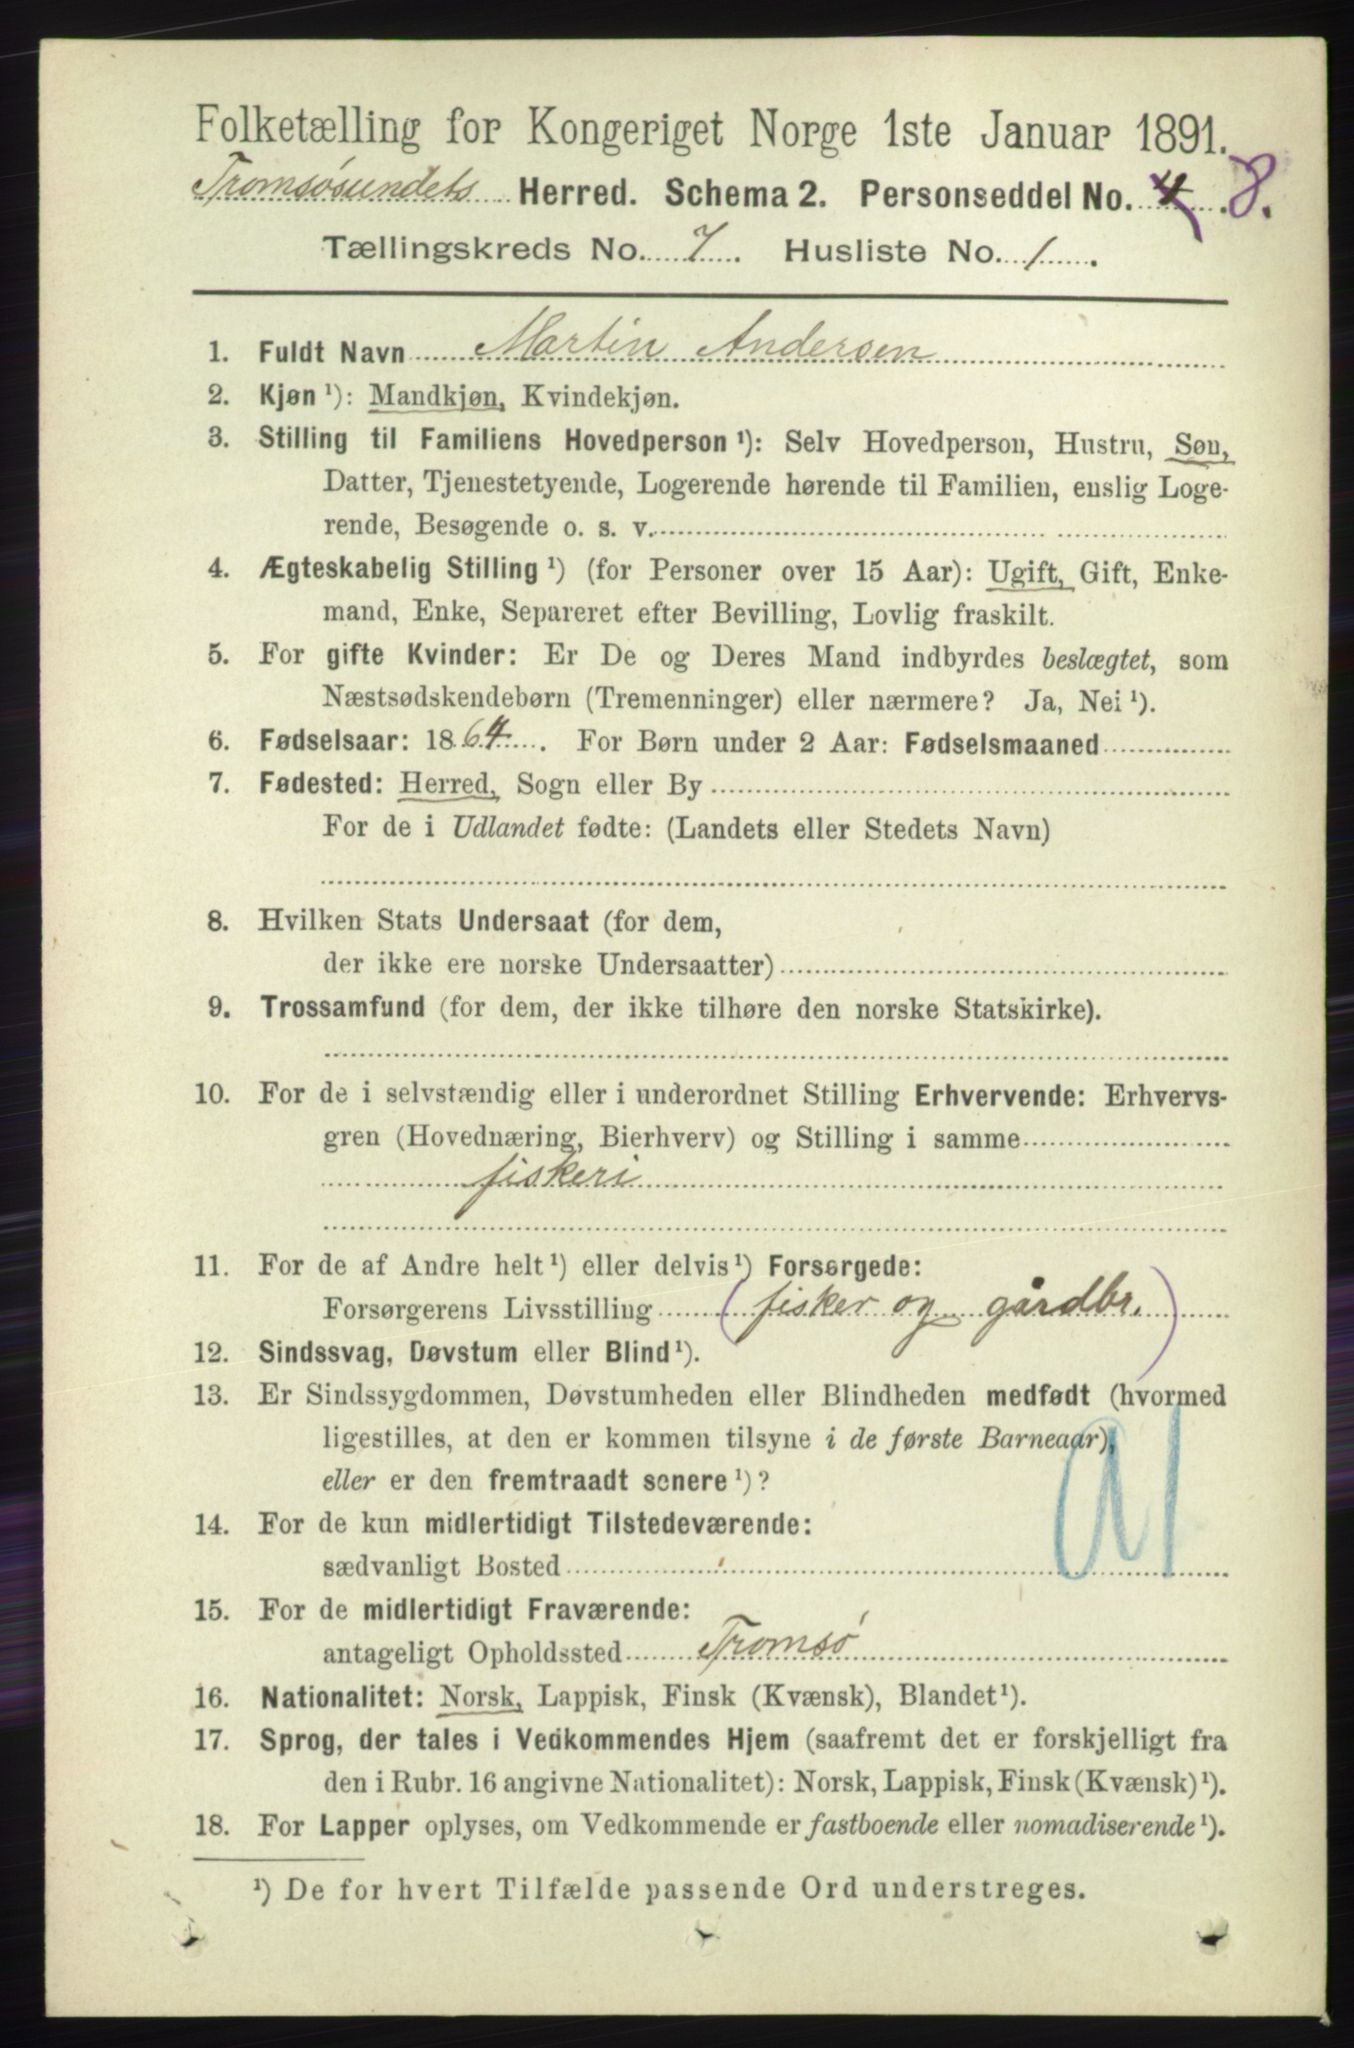 Folketælling for Kongeriget Norge 1ste Januar 1891.
Tromsøsundets Herred. Schema 2. Personseddel No. 4. 8.
Tællingskreds No. 7. Husliste No. 1.
1. Fuldt Navn Martin Andersen
2. Kjøn ¹): Mandkjøn, Kvindekjøn.
3. Stilling til Familiens Hovedperson ¹): Selv Hovedperson, Hustru, Søn,
Datter, Tjenestetyende, Logerende hørende til Familien, enslig Loge-
rende, Besøgende o. s. v.
4. Ægteskabelig Stilling ¹) (for Personer over 15 Aar): Ugift, Gift, Enke-
mand, Enke, Separeret efter Bevilling, Lovlig fraskilt.
5. For gifte Kvinder: Er De og Deres Mand indbyrdes beslægtet, som
Næstsødskendebørn (Tremenninger) eller nærmere? Ja, Nei ¹).
6. Fødselsaar: 1864. For Børn under 2 Aar: Fødselsmaaned
7. Fødested: Herred, Sogn eller By
For de i Udlandet fødte: (Landets eller Stedets Navn)
8. Hvilken Stats Undersaat (for dem,
der ikke ere norske Undersaatter)
9. Trossamfund (for dem, der ikke tilhøre den norske Statskirke).
10. For de i selvstændig eller i underordnet Stilling Erhvervende: Erhvervs-
gren (Hovednæring, Bierhverv) og Stilling i samme
fiskeri
11. For de af Andre helt ¹) eller delvis ¹) Forsørgede:
Forsørgerens Livsstilling (fisker og gårdbr.)
12. Sindssvag, Døvstum eller Blind ¹).
13. Er Sindssygdommen, Døvstumheden eller Blindheden medfødt (hvormed
ligestilles, at den er kommen tilsyne i de første Barneaar),
eller er den fremtraadt senere ¹)?
14. For de kun midlertidigt Tilstedeværende:
sædvanligt Bosted
15. For de midlertidigt Fraværende:
antageligt Opholdssted Tromsø
16. Nationalitet: Norsk, Lappisk, Finsk (Kvænsk), Blandet ¹).
17. Sprog, der tales i Vedkommendes Hjem (saafremt det er forskjelligt fra
den i Rubr. 16 angivne Nationalitet): Norsk, Lappisk, Finsk (Kvænsk) ¹).
18. For Lapper oplyses, om Vedkommende er fastboende eller nomadiserende ¹).
¹) De for hvert Tilfælde passende Ord understreges.